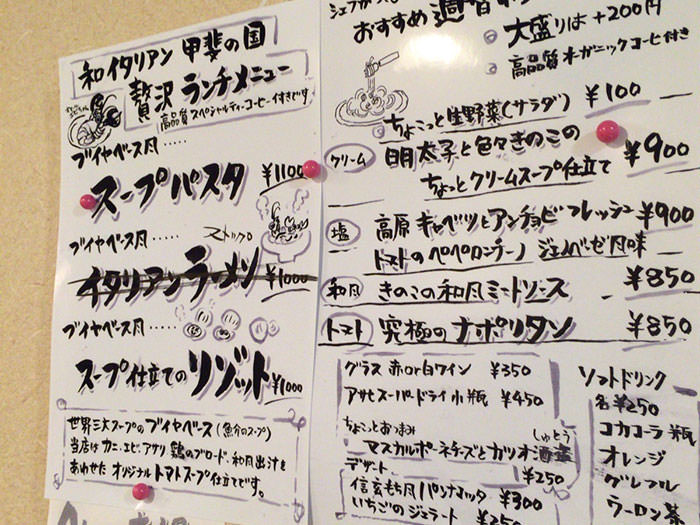 和イタリアン 甲斐の国
贅沢 ランチメニュー
高品質スペシャルティーコーヒー付きです
ブイヤベース風‥‥‥
スープパスタ ¥1100
ブイヤベース風‥‥‥ ストップ
イタリアンラーメン ¥1000
ブイヤベース風‥‥‥
スープ仕立てのリゾット ¥1000
世界三大スープのブイヤベース(魚介のスープ)
当店は カニ、エビ、アサリ 鶏のブロード、和風出汁を
あわせた オリジナルトマトスープ仕立てです。
おすすめ 週替
大盛りは +200円
高品質オーガニックコーヒー付き
ちょこっと生野菜(サラダ) ¥100
クリーム 明太子と色々きのこの
ちょっとクリームスープ仕立て ¥900
塩 高原キャベツとアンチョビ フレッシュ ¥900
トマトのペペロンチーノ ジェノベーゼ風味
和風 きのこの和風ミートソース ¥850
トマト 究極のナポリタン ¥850
グラス 赤or白ワイン ¥350
アサヒスーパードライ小瓶 ¥450
ちょこっとおつまみ
マスカルポーネチーズとカツオ酒盗 しゅとう
¥250
デザート
信玄もち風パンナコッタ ¥300
いちごのジェラート
ソフトドリンク
各¥250
コカコーラ 瓶
オレンジ
グレフル
ウーロン茶